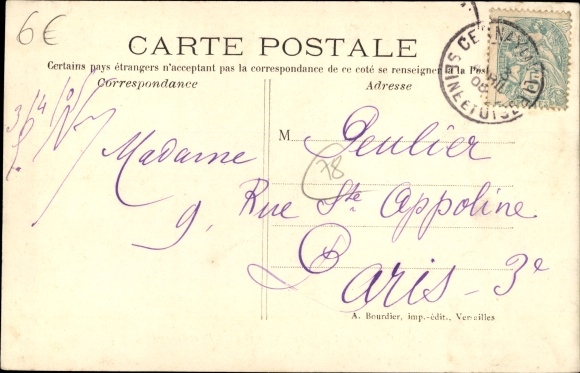 6€
CARTE POSTALE
Certains pays étrangers n'acceptant pas la correspondance de ce coté se renseigner à la Poste
Correspondance
Adresse
M
Madame Peulier
78
9, Rue Ste Appoline
Paris - 3e
A. Bourdier, imp.-édit., Versailles
SEINE ET OISE